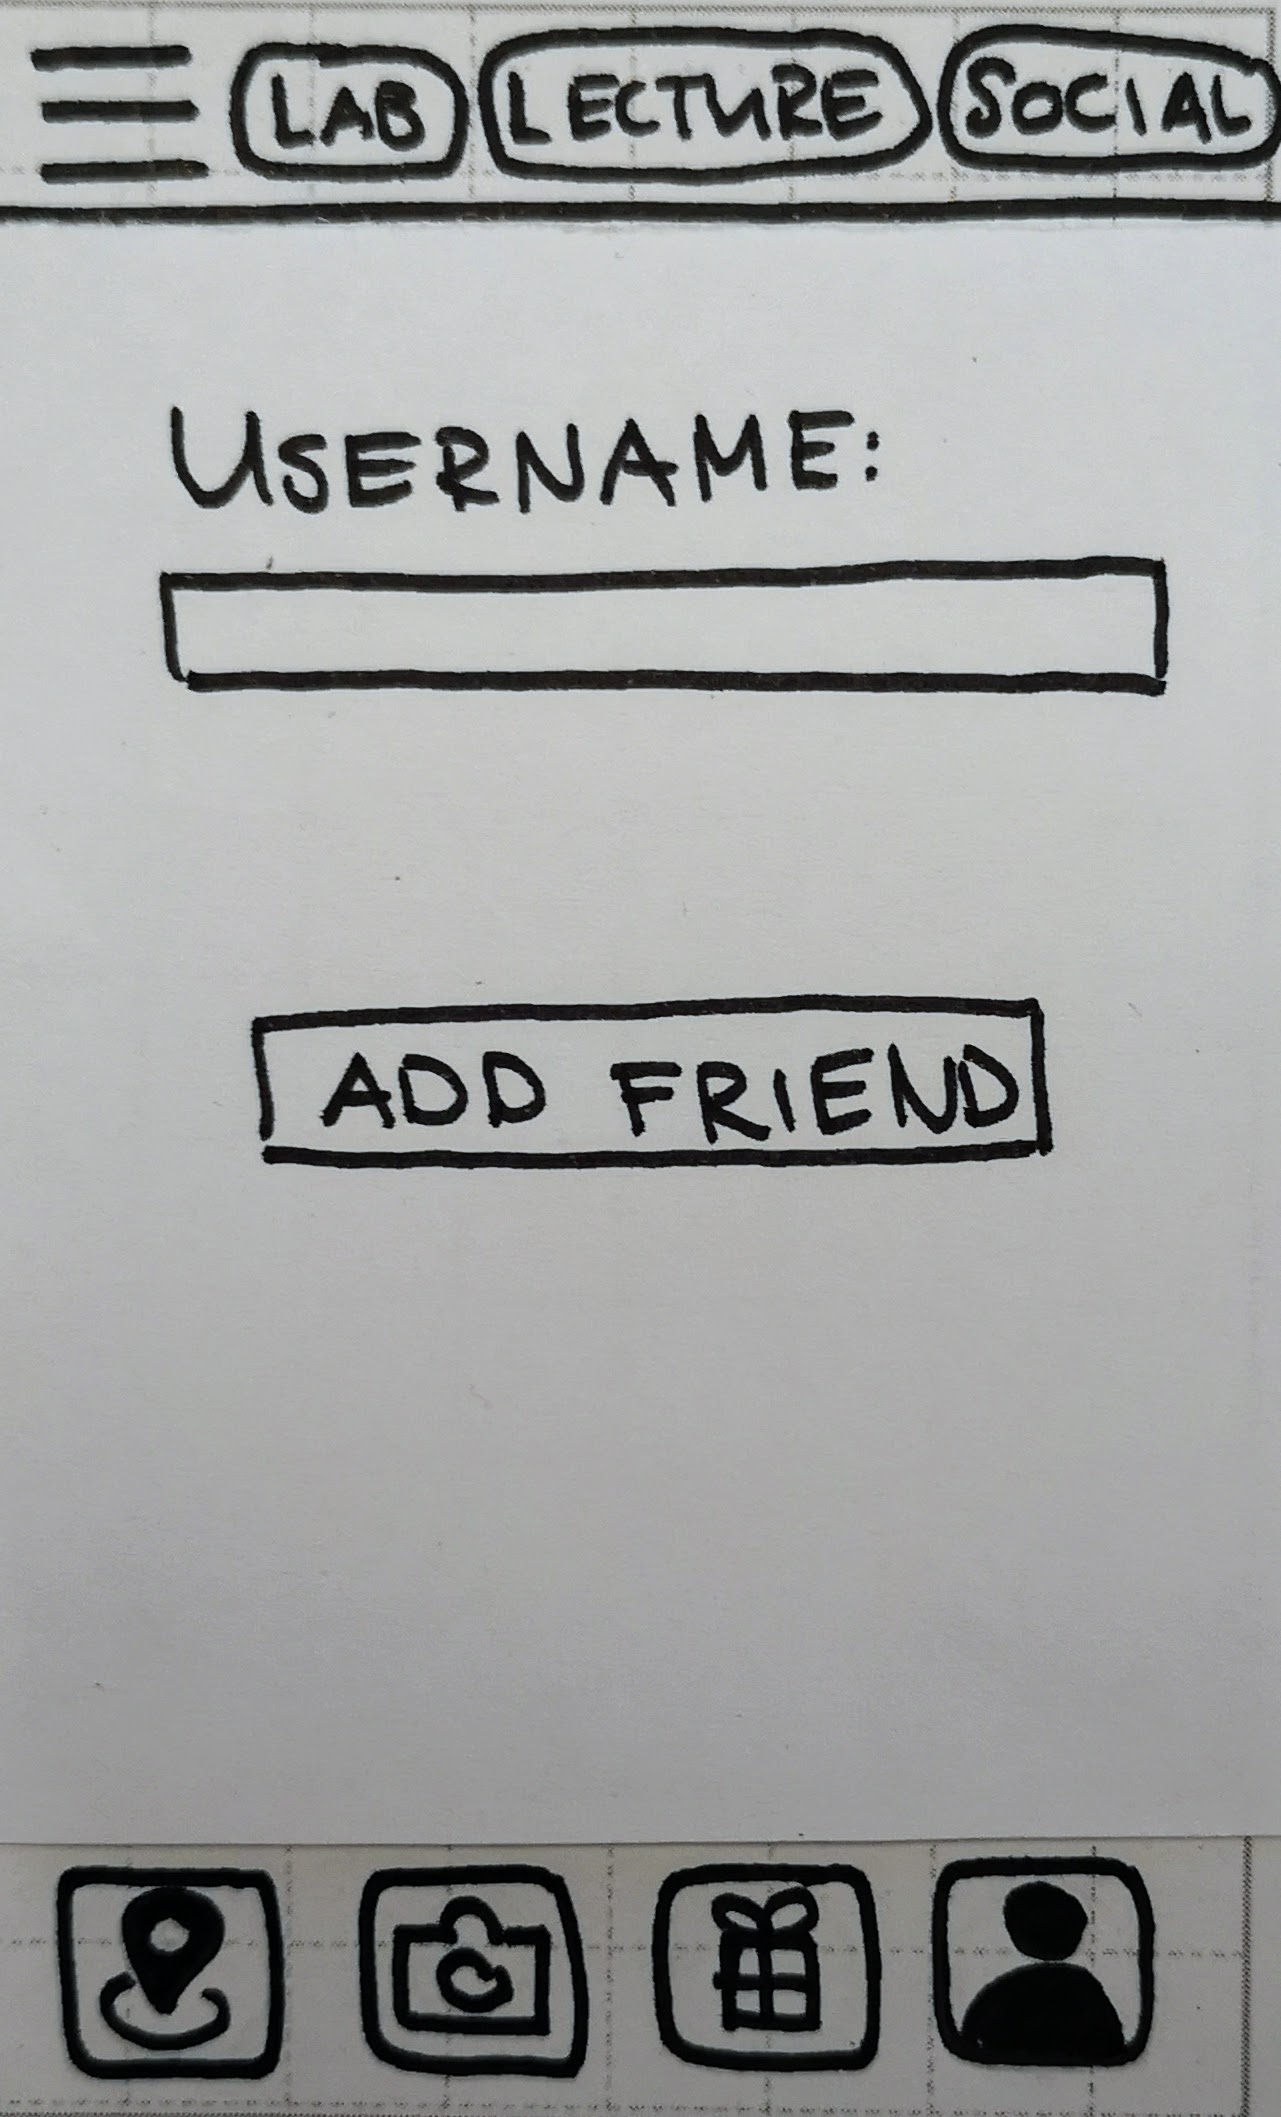 LAB LECTURE SOCIAL
USERNAME:
ADD FRIEND